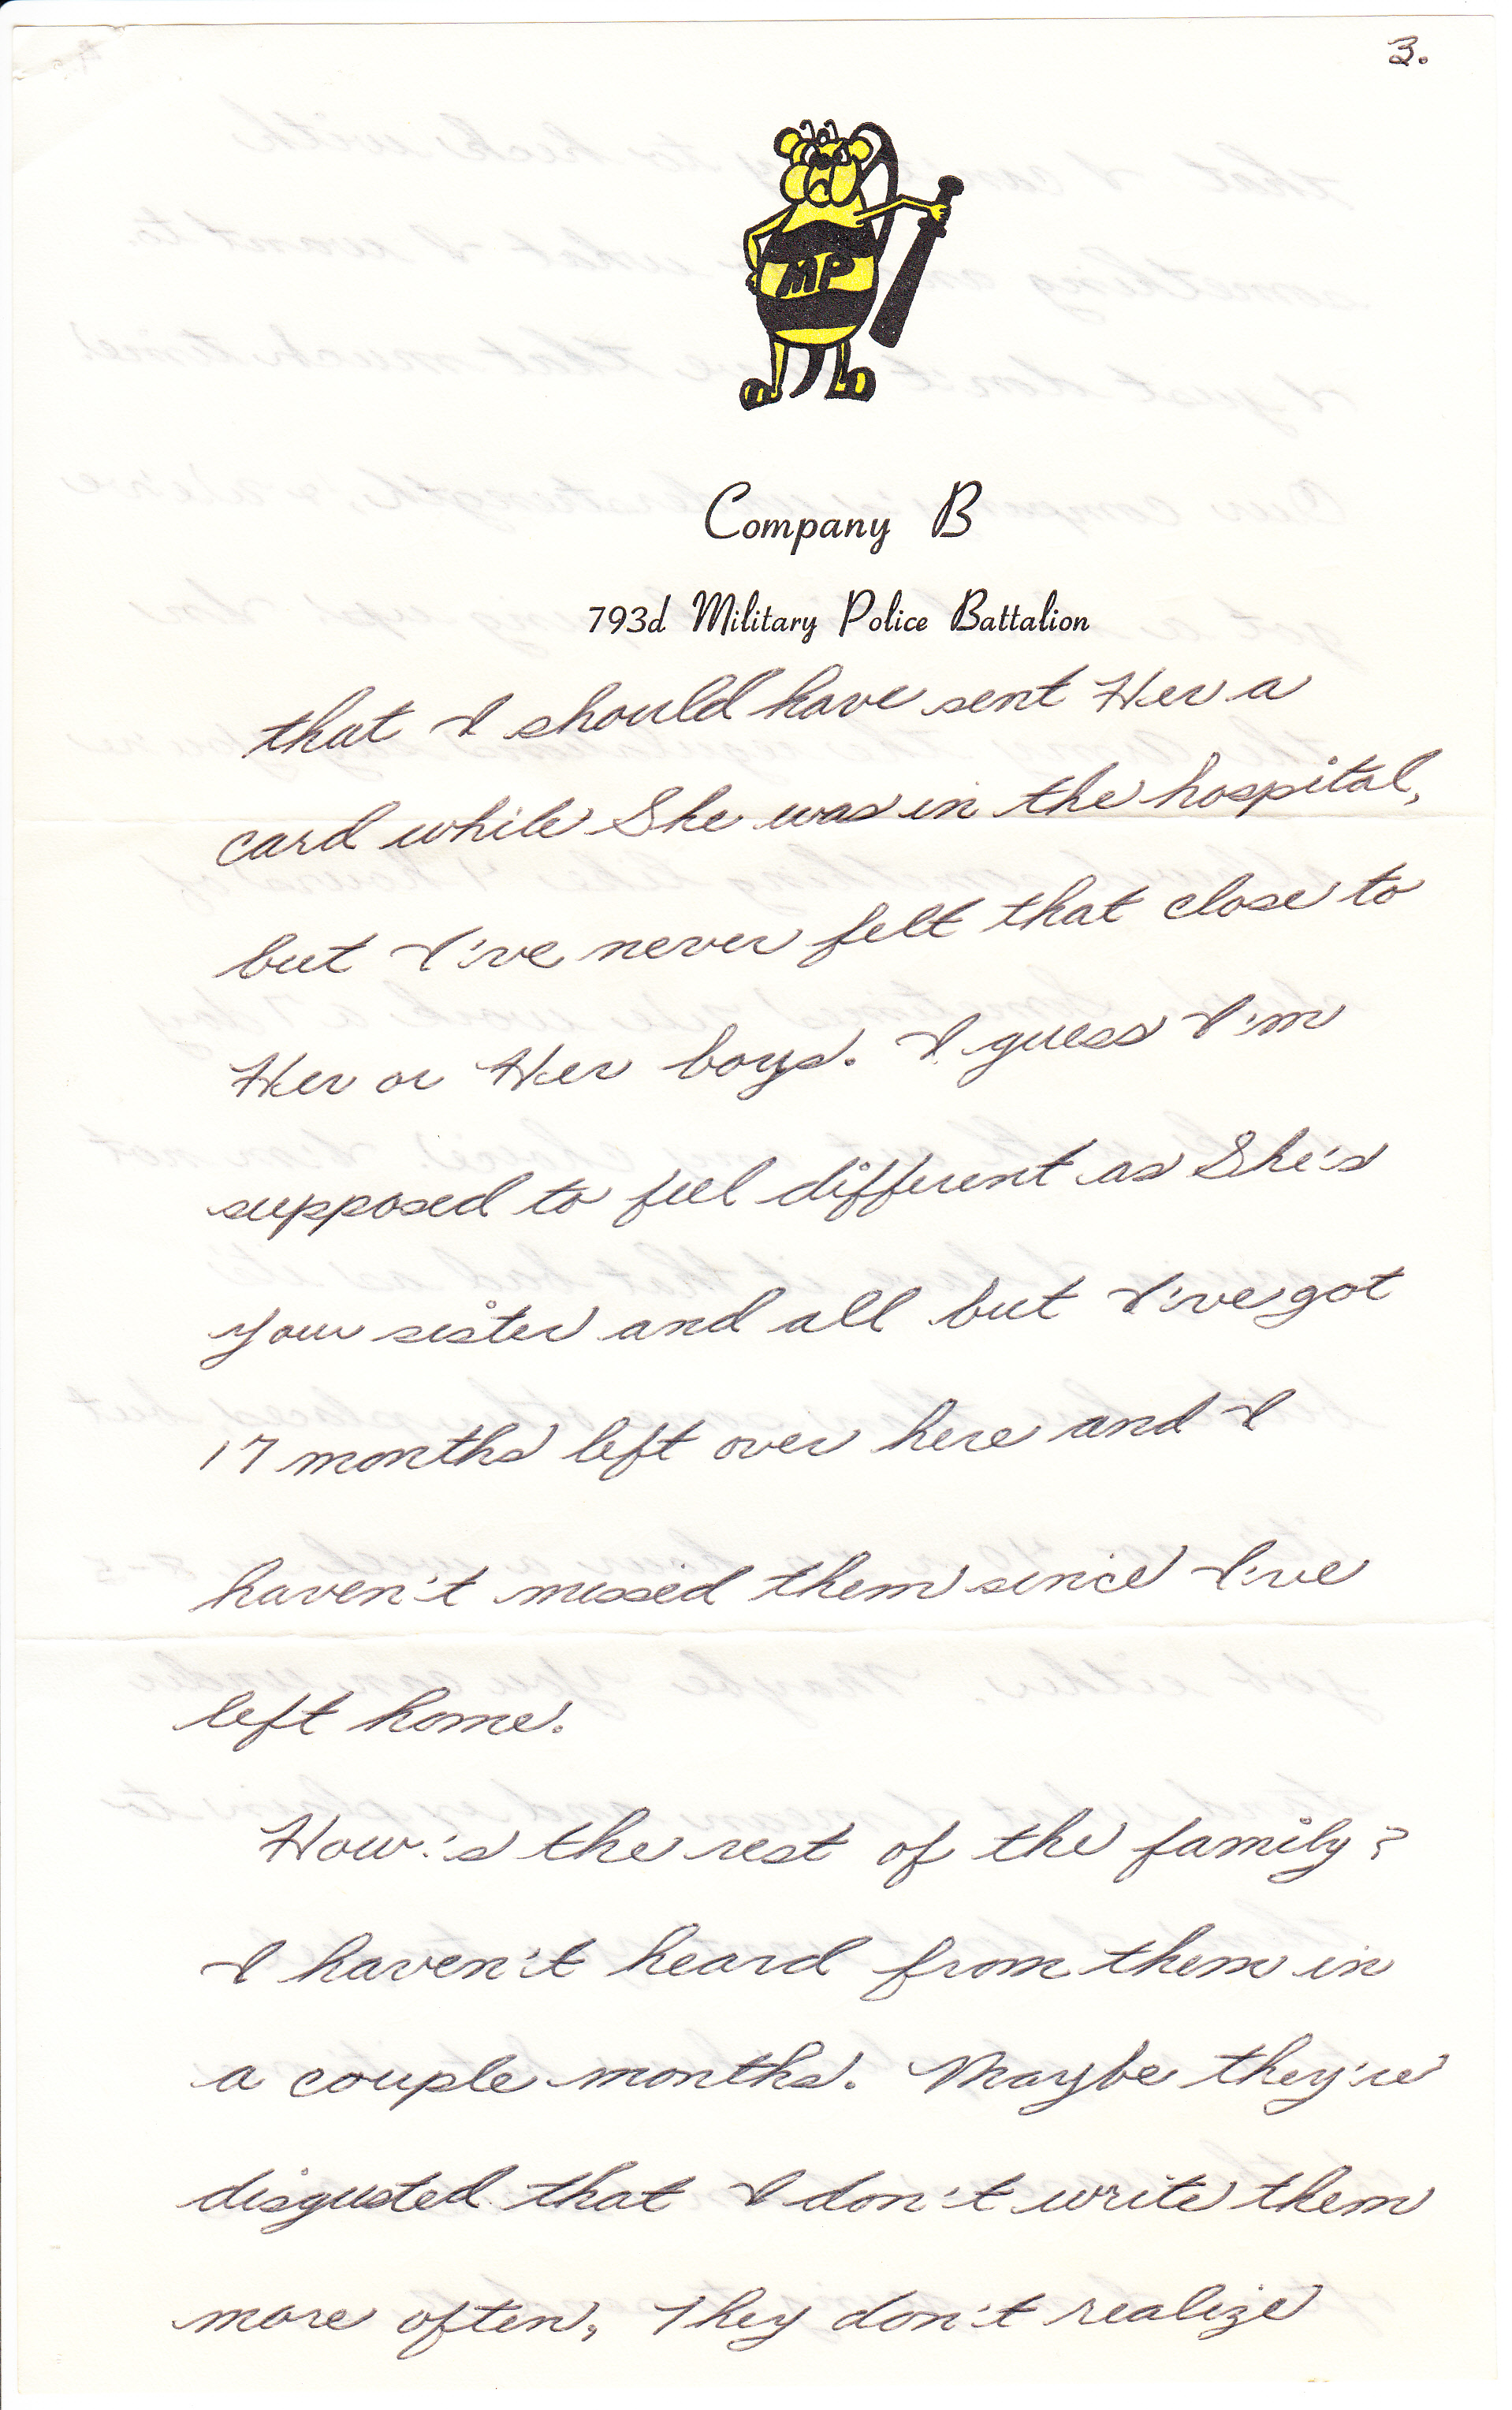 3.
MP
Company B
793d Military Police Battalion
that I should have sent Her a
card while She was in the hospital,
but I've never felt that close to
Her or Her boys. I guess I'm
supposed to feel different as She's
your sister and all but I've got
17 months left over here and I
haven't missed them since I've
left home.
How's the rest of the family?
I haven't heard from them in
a couple months. Maybe they're
disgusted that I don't write them
more often, They don't realize